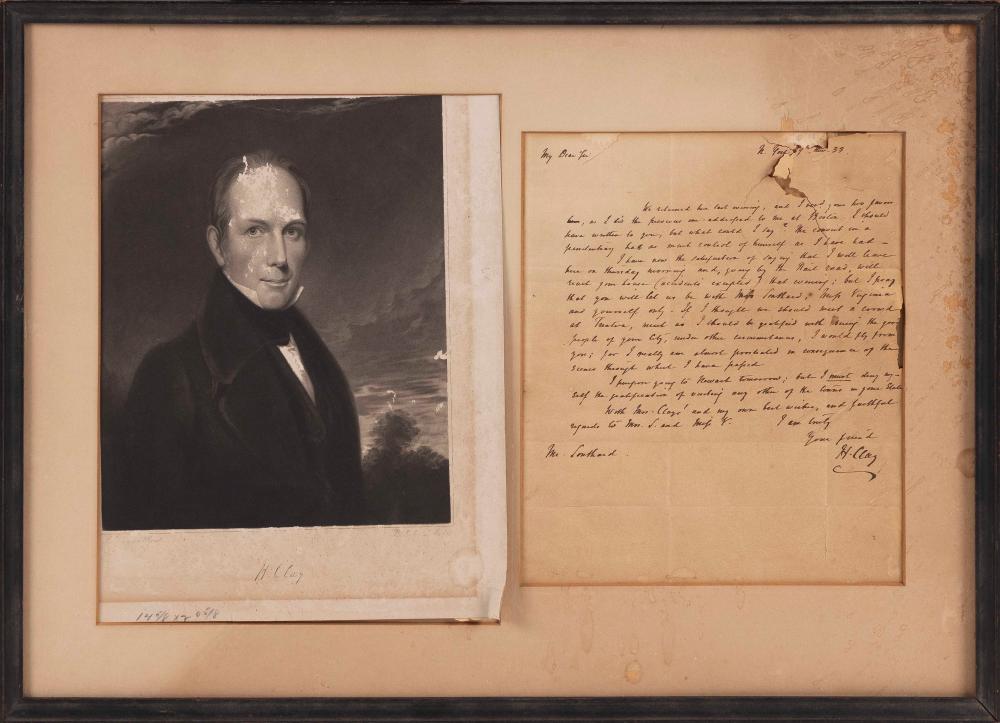 H. Clay
14 5/8 x
My Dear Sir N. York 33.
We returned here last evening, and I rec'd your two favors
here, as I did the previous one addressed to me at Boston. I should
have written to you; but what could I say? The convict in a
penitentiary hath as much control of himself as I have had –
I have now the satisfaction of saying that I will leave
here on thursday morning and, going by the Rail road, will
reach your house (accidents excepted) that evening; but I pray
that you will let us be with Mrs Southard, Miss Virginia
and yourself only. If I thought we should meet a crowd
at Trenton, much as I should be gratified with seeing the good
people of your City, under other circumstances, I would fly from
you; for I really am almost prostrated in consequence of the
scenes through which I have passed
I purpose going to Newark tomorrow; but I must deny my–
self the gratification of visiting any other of the towns in your State
With Mrs. Clays' and my own best wishes, and faithful
regards to Mrs. S. and Miss V. I am truly
Your friend
H. Clay
Mr. Southard.